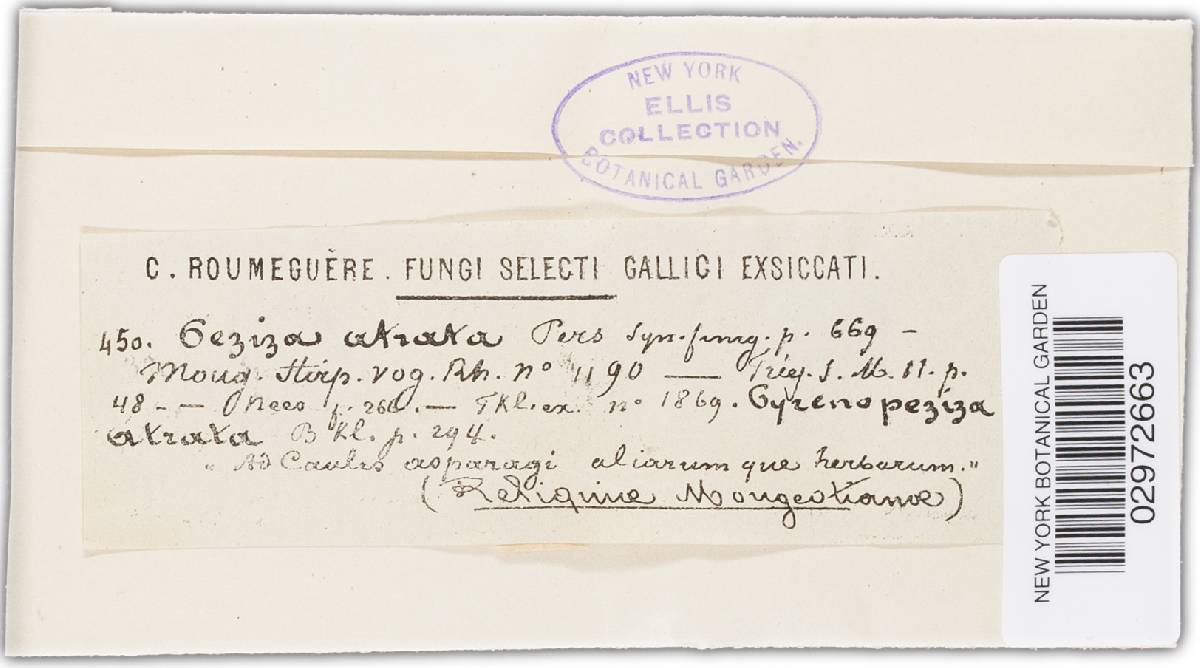 NEW YORK
ELLIS
COLLECTION
BOTANICAL GARDEN.
C. ROUMEGUÈRE. FUNGI SELECTI GALLICI EXSICCATI.
450. Peziza atrata Pers Syn. fung. p. 669 –
Moug. Stirp. Vog. Rh. nº 1190 — Fries. S. M. II. p.
48 – — p. 266. — Fkl. ex. nº 1869. Pyrenopeziza
atrata Fkl. p. 294.
„ Ad Caules asparagi aliarumque herbarum."
(Reliquiae Mougeotianae)
NEW YORK BOTANICAL GARDEN
02972663